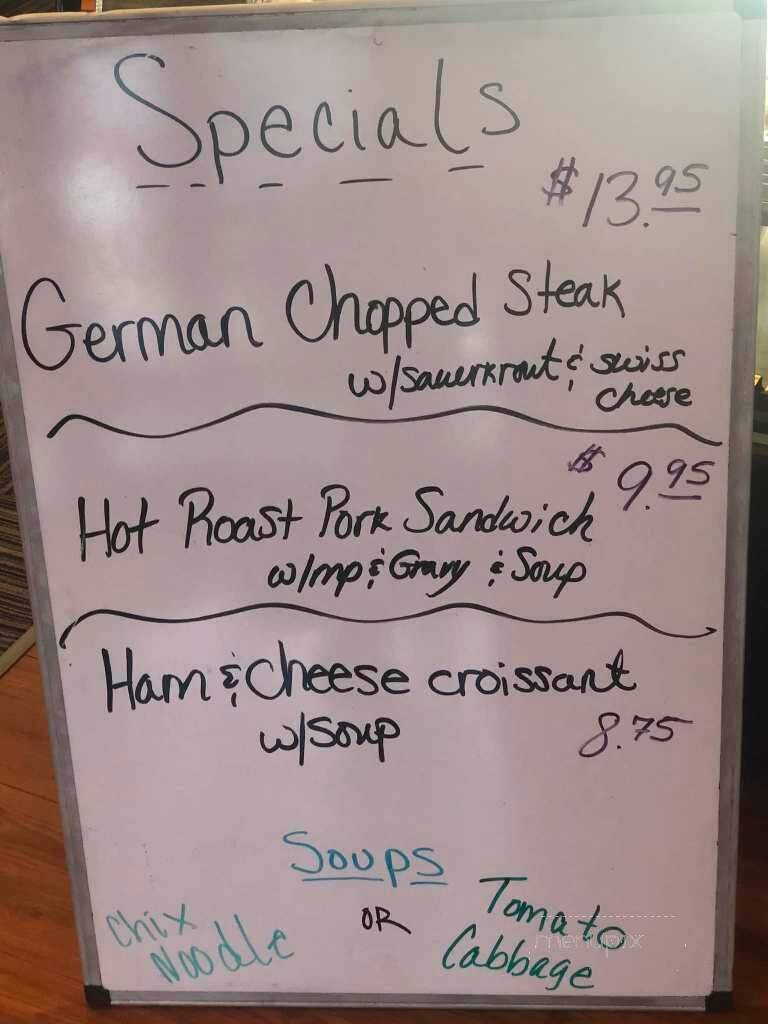 Specials
$13.95
German Chopped Steak
w/sauerkraut & swiss
cheese
$9.95
Hot Roast Pork Sandwich
w/mp & Gravy & Soup
Ham & Cheese croissant
w/soup
8.75
Soups
Chix
Noodle
OR
Tomato
Cabbage
menupix